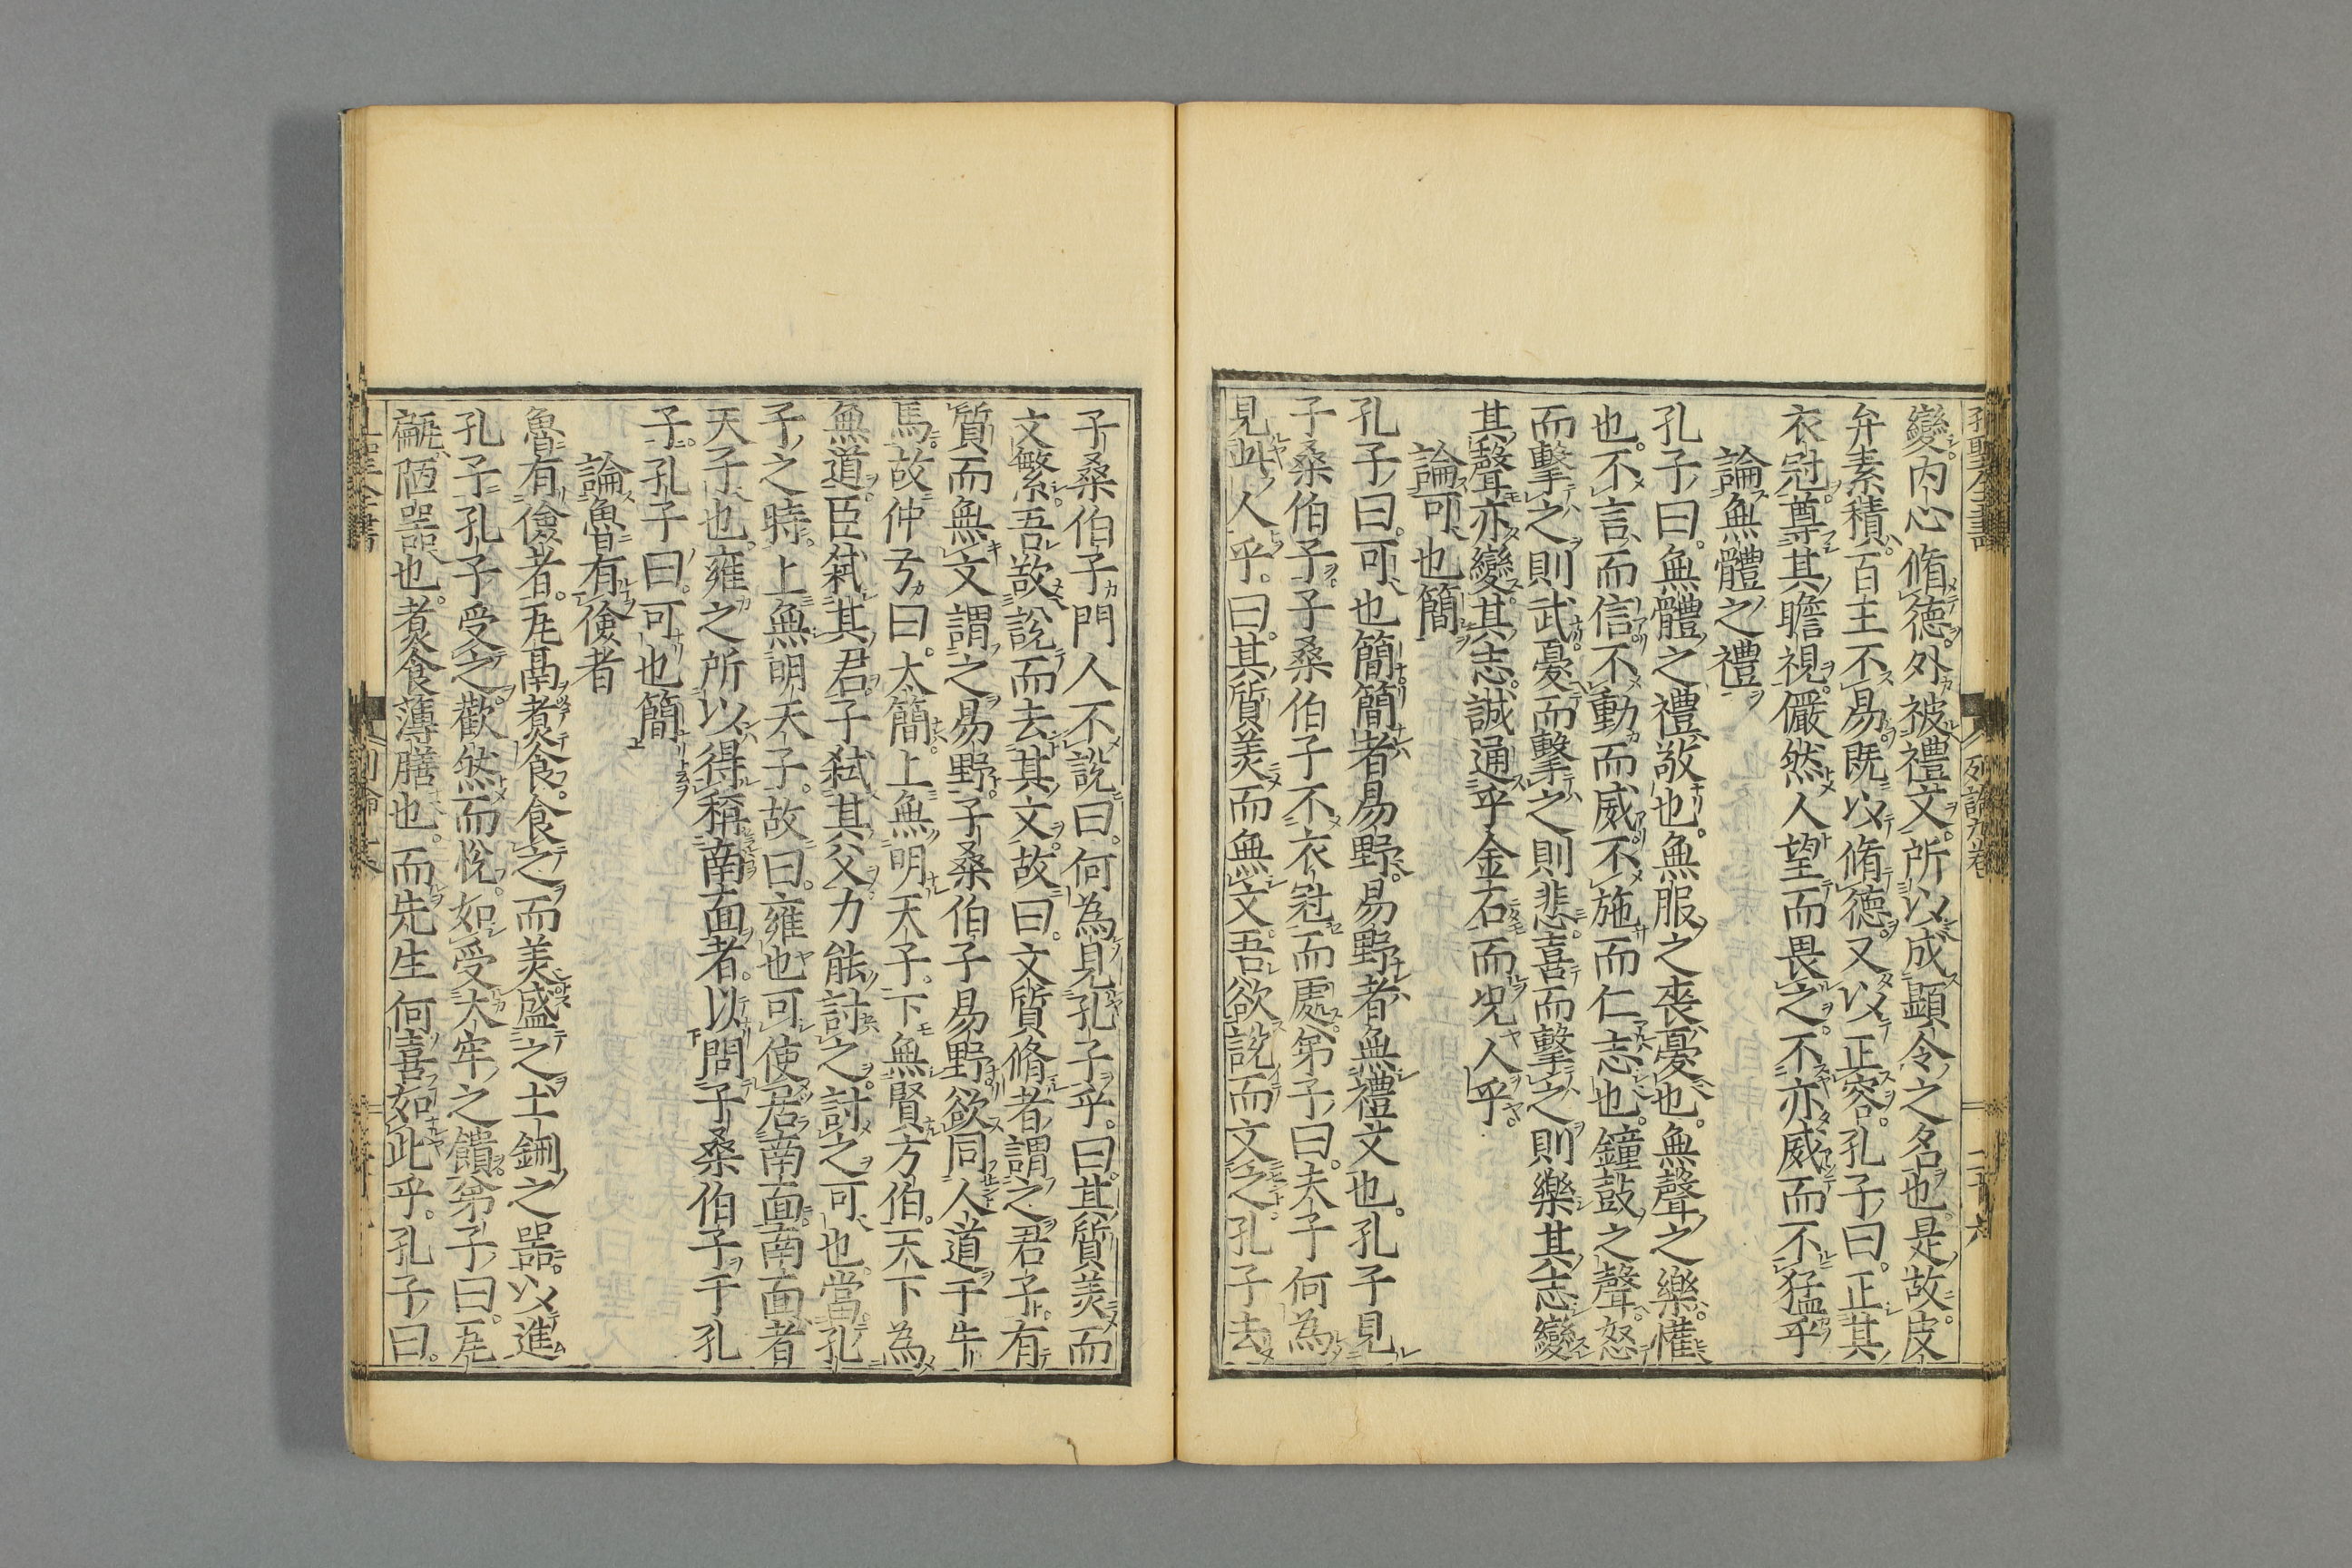 變内心脩徳。外被禮文。所以成顯令之名也。是故皮
弁素積。百王不易。既以脩徳。又以正容。孔子曰。正其
衣冠。尊其瞻視。儼然人望而畏之。不亦威而不猛乎
論無體之禮
孔子曰。無體之禮敬也。無服之喪憂也。無聲之樂。懽
也。不言而信。不動而威。不施而仁。志也。鐘鼓之聲。怒
而擊之則武。憂而擊之則悲。喜而擊之則樂。其志變
其聲亦變。其志誠通乎金石。而况人乎。
論可也簡
孔子曰。可也簡。簡者易野。易野者無禮文也。孔子見
子桑伯子。子桑伯子不衣冠而處。弟子曰。夫子何為
見此人乎。曰。其質美而無文。吾欲說而文之。孔子去
子桑伯子門人不說曰。何為見孔子乎。曰。其質美而
文繁。吾欲說而去其文。故曰。文質脩者。謂之君子。有
質而無文謂之易野。子桑伯子易野。欲同人道于牛
馬。故仲弓曰。太簡。上無明天子。下無賢方伯。天下為
無道。臣弑其君。子弑其父。力能討之。討之可也。當孔
子之時。上無明天子。故曰。雍也可使居南面。南面者
天子也。雍之所以得稱南面者。以問子桑伯子于孔
子。孔子曰。可也簡
論魯有儉者
魯有儉者。瓦鬲煮食。食之而美。盛之土鉶之器。以進
孔子。孔子受之。歡然而悅。如受太牢之饋。弟子曰。瓦
甂陋器也。煮食薄膳也。而先生何喜如此乎。孔子曰。